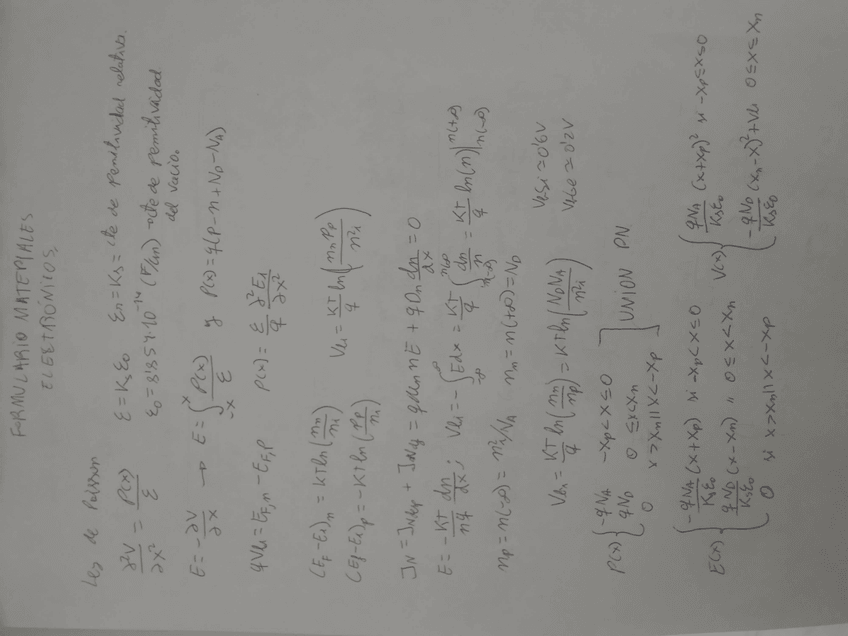 FORMULARIO MATERIALES
ELECTRÓNICOS
Ley de Poisson
∂²V/∂x² = P(x)/ε   ε = Ks ε0   εr = Ks = cte de permitividad relativa.
ε0 = 8'854·10⁻¹⁴ (F/cm) → cte de permitividad
del vacío.
E = -∂V/∂x → E = ∫₋ₓˣ P(x)/ε   y   P(x) = q(p-n+ND-NA)
qVbi = EF,n - EF,p   P(x) = ε/q ∂²Ei/∂x²
(EF-Ei)n = KT ln(nn/ni)   Vbi = KT/q ln(nn Pp/n²i)
(EF-Ei)p = -KT ln(Pp/ni)
JN = JNdep + JNdif = qμn n E + qDn dn/dx = 0
E = -KT/nq dn/dx ;   Vbi = -∫₋∞^∞ E dx = KT/q ∫n(-∞)^n(∞) dn/n = KT/q ln(n)|n(-∞)^n(+∞)
np = n(-∞) = n²i/NA   nn = n(+∞) = ND
Vbi = KT/q ln(nn/np) = KT ln(ND NA/n²i)   VbiSi ≈ 0'6V
VbiGe ≈ 0'2V
P(x) { -qNA   -xp<x≤0
qND   0≤x<xn
0   x>xn || x<-xp ] UNION PN
E(x) { -qNA/Ksε0 (x+xp)   si -xp<x≤0
qND/Ksε0 (x-xn)   "   0≤x<xn
0   si x>xn || x<-xp
V(x) { qNA/Ksε0 (x+xp)²   si -xp≤x≤0
-qND/Ksε0 (xn-x)² + Vbi   0≤x≤xn